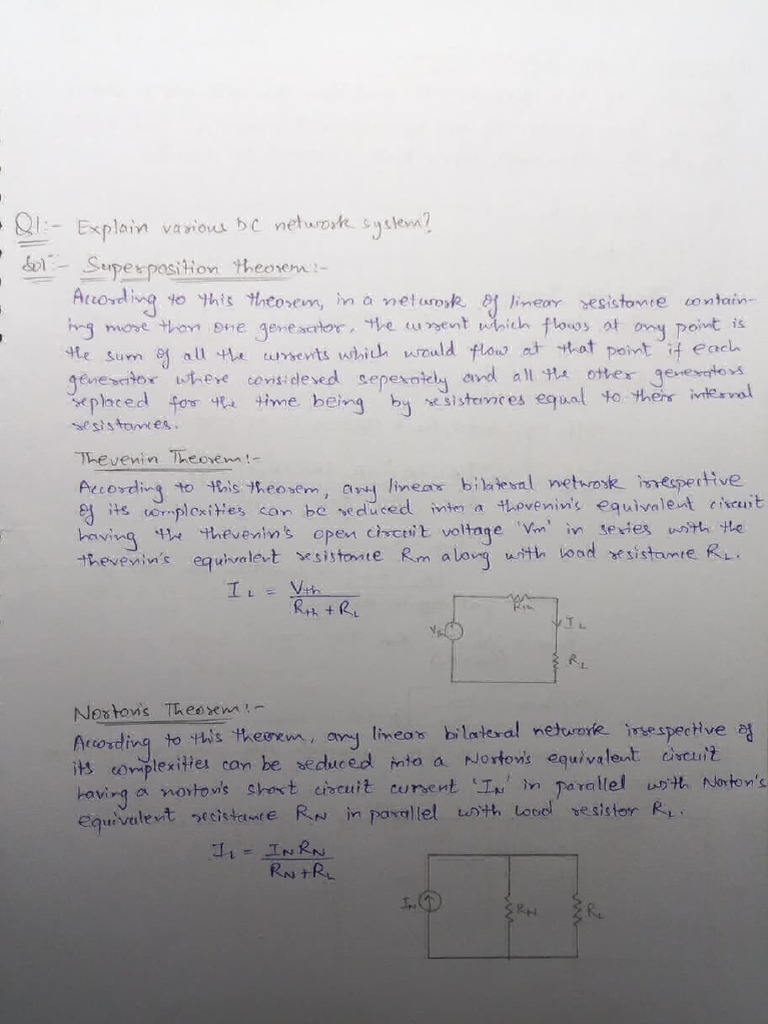 Q1:- Explain various DC network system?
Sol:- Superposition theorem:-
According to this theorem, in a network of linear resistance contain-
ing more than one generator, the current which flows at any point is
the sum of all the currents which would flow at that point if each
generator where considered seperately and all the other generators
replaced for the time being by resistances equal to their internal
resistances.
Thevenin Theorem:-
According to this theorem, any linear bilateral network irrespective
of its complexities can be reduced into a thevenin's equivalent circuit
having the thevenin's open circuit voltage 'Vm' in series with the
thevenin's equivalent resistance Rm along with load resistance RL.
IL = Vth
Rth + RL
Rth
Vth
IL
RL
Norton's Theorem:-
According to this theorem, any linear bilateral network irrespective of
its complexities can be reduced into a Norton's equivalent circuit
having a norton's short circuit current 'IN' in parallel with Norton's
equivalent resistance RN in parallel with load resistor RL.
IL = IN RN
RN + RL
IN
RN
RL